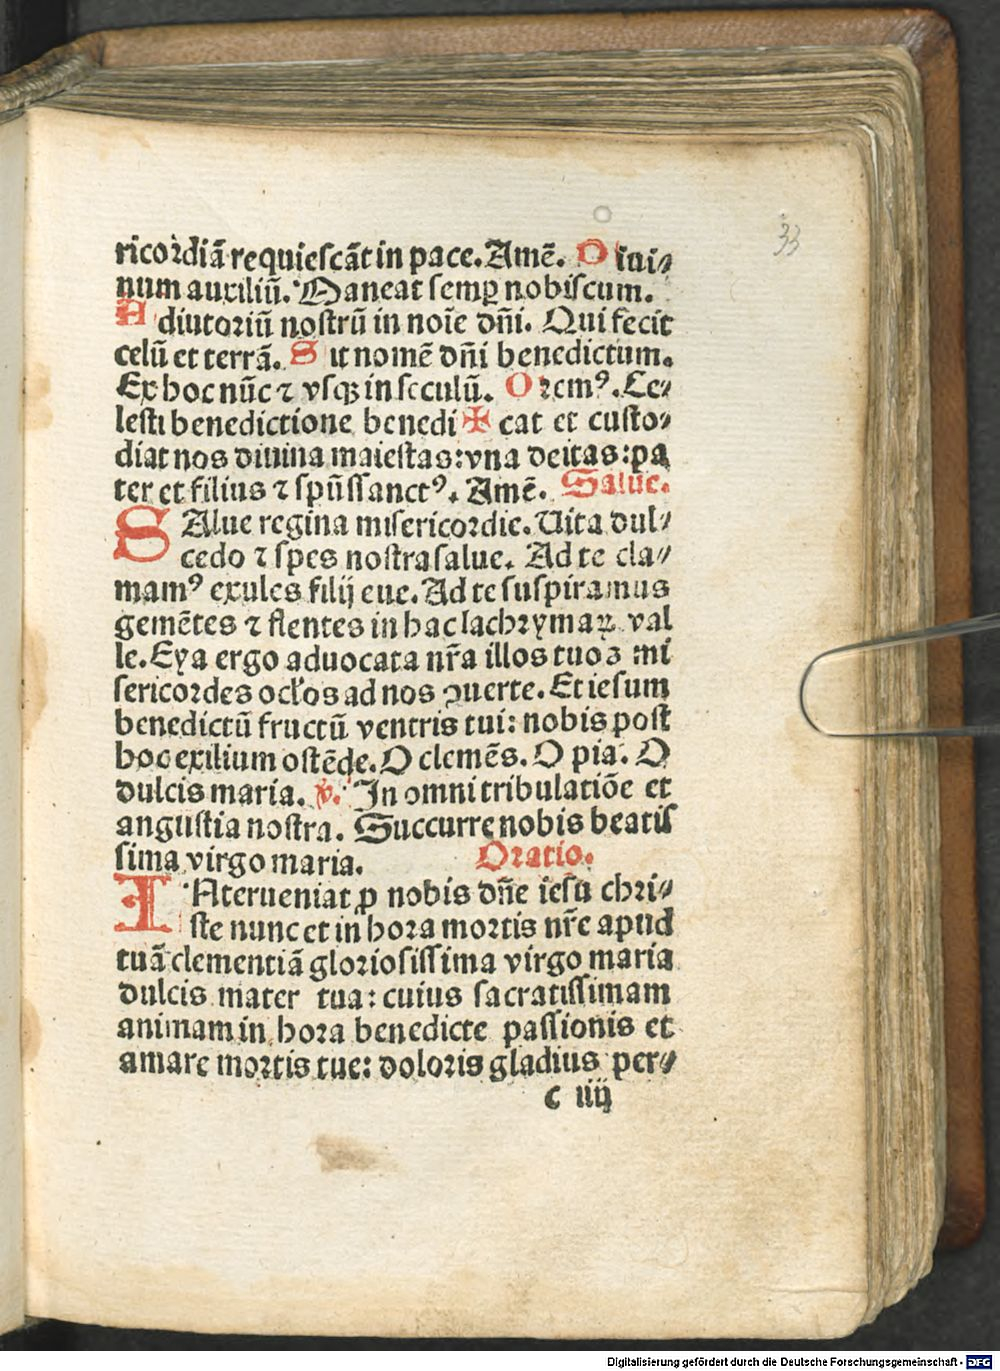 33
ricordiā requiescāt in pace. Amē. Diui⸗
num auxiliū. Maneat semꝑ nobiscum.
Adiutoriū nostrū in noīe dn̄i. Qui fecit
celū et terrā. Sit nomē dn̄i benedictum.
Ex hoc nūc ⁊ vsqꝫ in seculū. Oremꝰ. Ce⸗
lesti benedictione benedi✠cat et custo⸗
diat nos diuina maiestas: vna deitas: pa
ter et filius ⁊ spūssanctꝰ. Amē. Salue.
SAlue regina misericordie. Uita dul⸗
cedo ⁊ spes nostra salue. Ad te cla⸗
mamꝰ exules filij eue. Ad te suspiramus
gemētes ⁊ flentes in hac lachrymaꝝ val
le. Eya ergo aduocata nr̄a illos tuos mi
sericordes ocl̓os ad nos ꝯuerte. Et iesum
benedictū fructū ventris tui: nobis post
hoc exilium ostēde. O clemēs. O pia. O
dulcis maria. ℣. In omni tribulatiōe et
angustia nostra. Succurre nobis beatis
sima virgo maria. Oratio.
INterueniat ꝓ nobis dn̄e iesu chri⸗
ste nunc et in hora mortis nr̄e apud
tuā clementiā gloriosissima virgo maria
dulcis mater tua: cuius sacratissimam
animam in hora benedicte passionis et
amare mortis tue: doloris gladius per⸗
c iiij
Digitalisierung gefördert durch die Deutsche Forschungsgemeinschaft - DFG